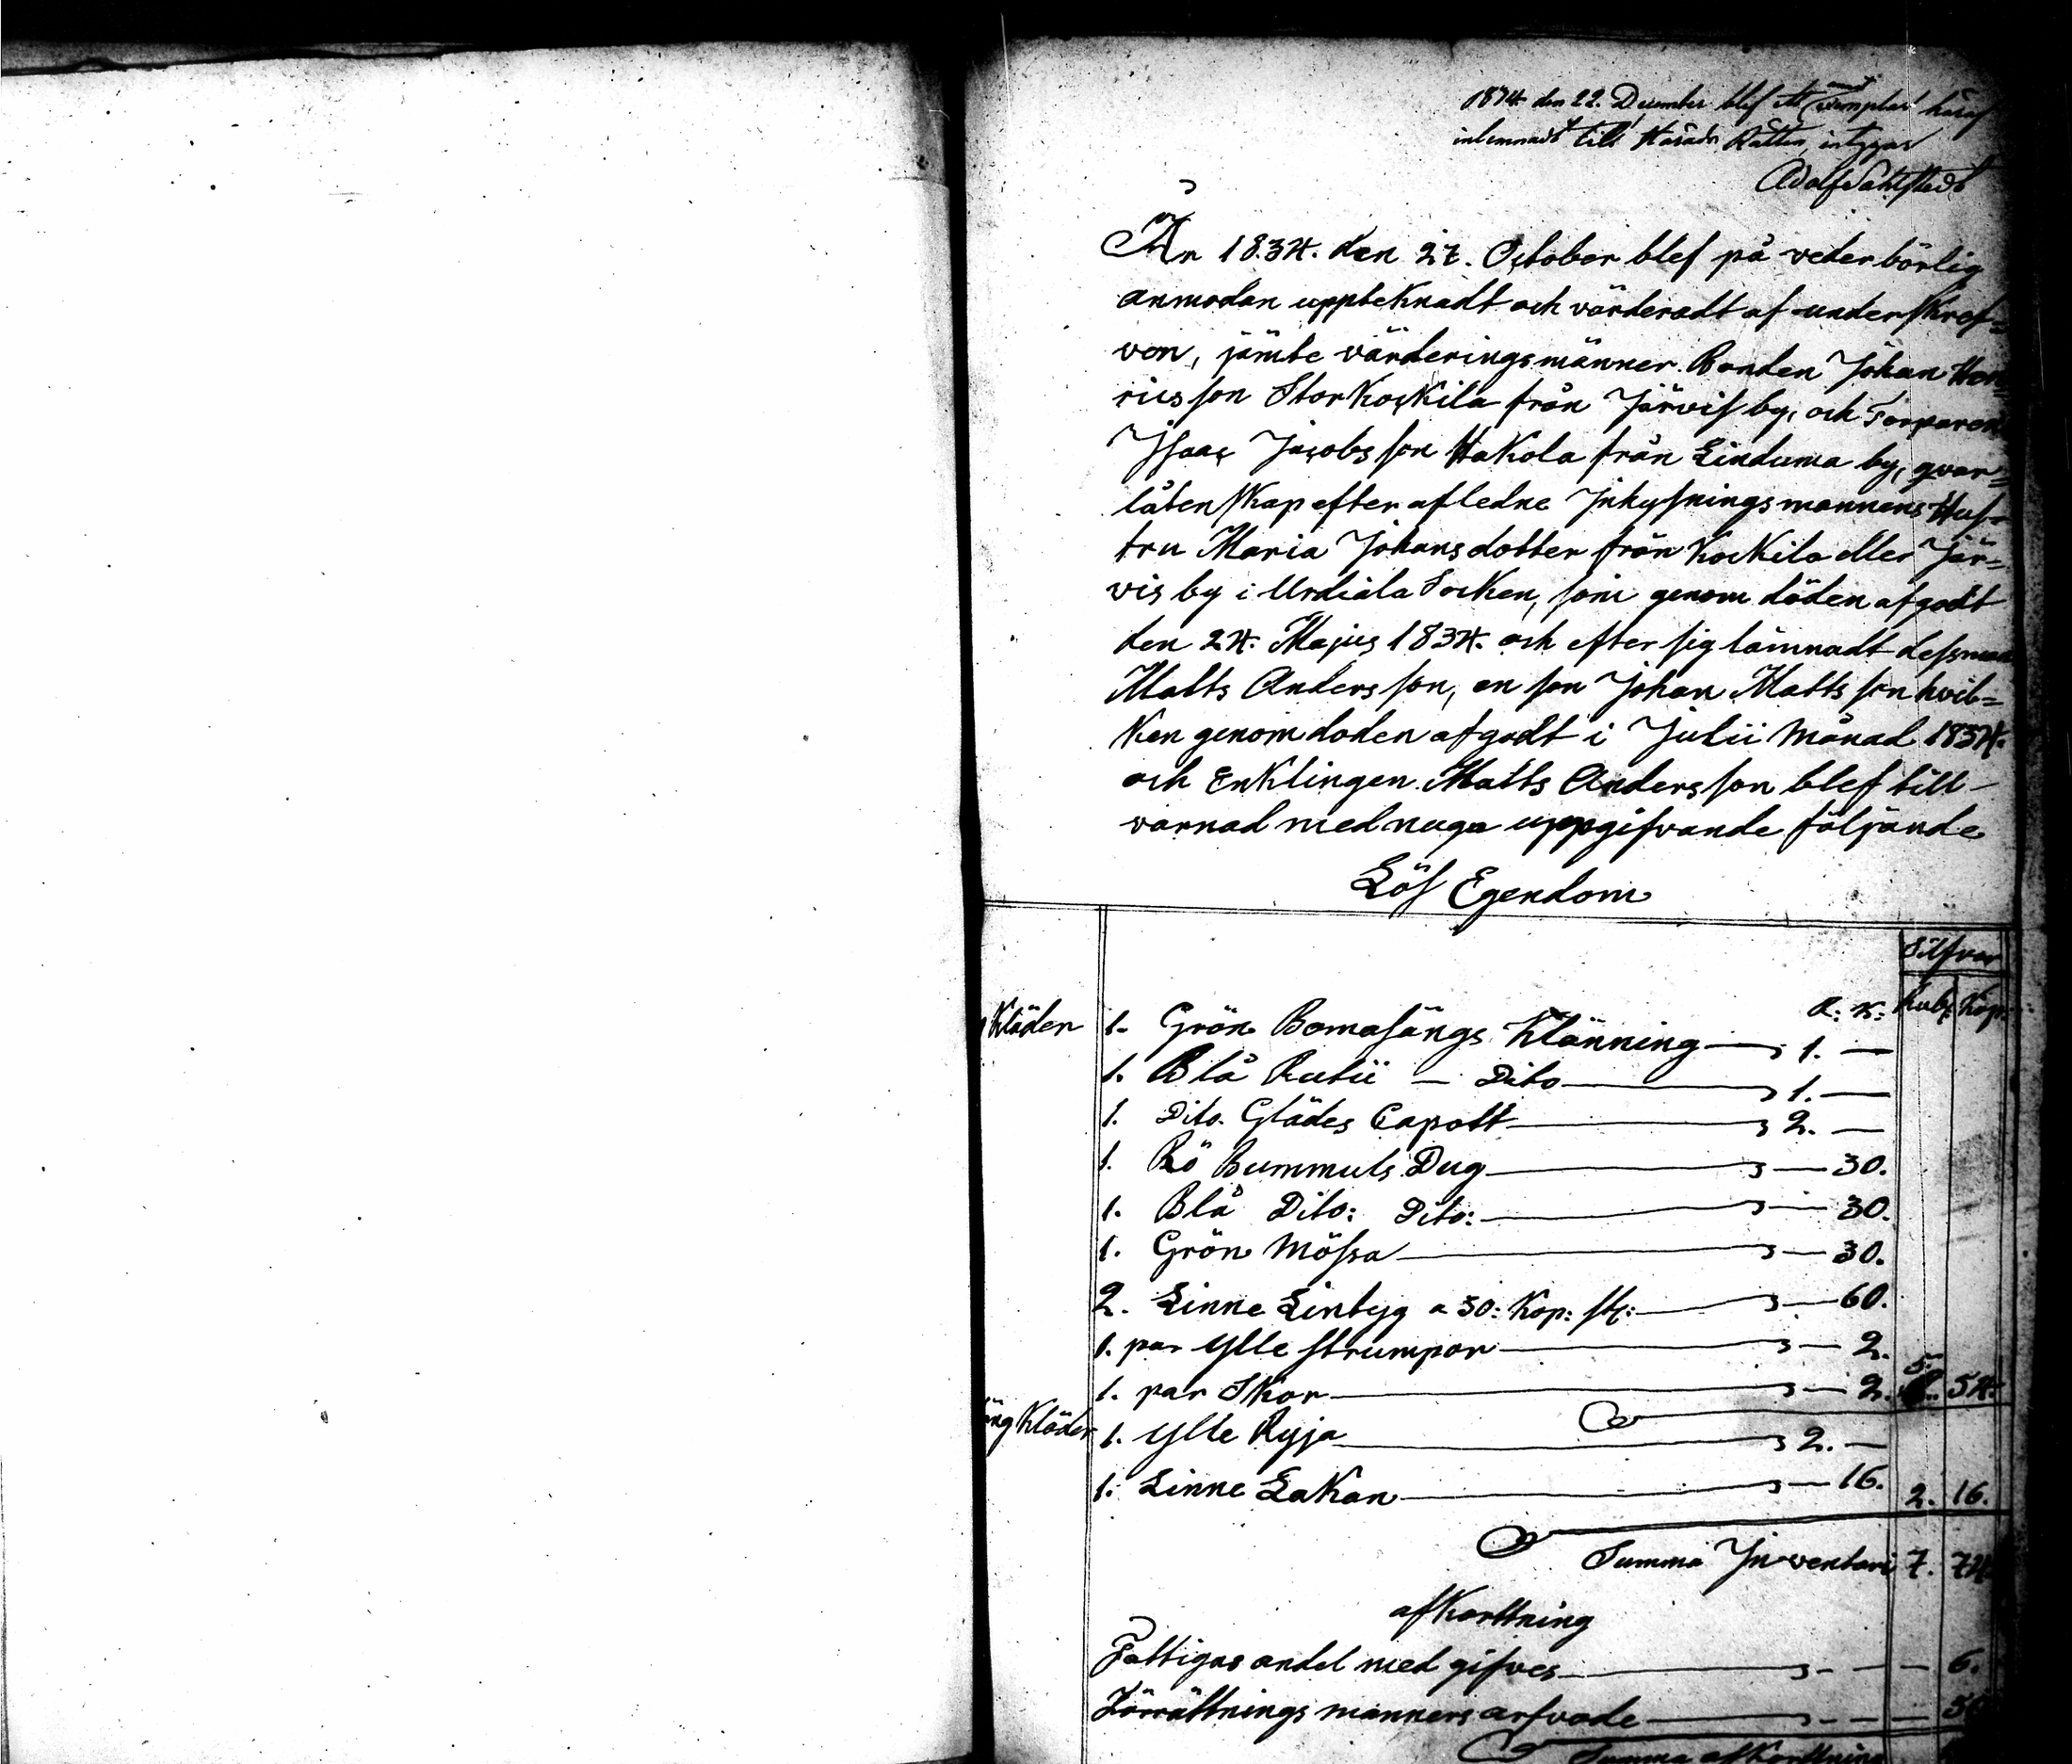 1874 den 22. December blef ett exemplar häraf
inlemnadt till Härads Rätten, intygar
Adolf Sahlstedt
År 1834. den 27. October blef på vederbörlig
anmodan uppteknadt och värderadt af underskref=
ven, jämte värderingsmänner Bonden Johan Hen=
ricsson Storkockila från Järvis by, och Torparen
Isaac Jacobsson Hakola från Linduma by, qvar=
låtenskap efter afledne Inhysningsmannens Hus=
tru Maria Johansdotter från Kockila eller Jär=
vis by i Urdiala Socken, som genom döden afgådt
den 24. Majus 1834. och efter sig lämnadt dess man
Matts Andersson, en son Johan Mattsson hvil=
ken genom doden afgådt i Julii Månad 1834.
och Enklingen Matts Andersson blef till-
varnad med noga uppgifvande följande
Lös Egendom
Silfver
R: K: Rub: Kop:
Kläder 1. Grön Bomasängs Klänning 1. —
1. Blå Rutii — Dito 1. —
1. Dito. Glädes Capott 2. —
1. Rö Bummuls Dug — 30.
1. Blå Dito: Dito: — 30.
1. Grön Mössa — 30.
2. Linne Lintyg a 30: Kop: st: — 60.
1. par Ylle strumpor — 2.
1. par Skor — 2. 5. 54.
äng Kläder 1. Ylle Ryja 2. —
1. Linne Lakan — 16. 2. 16.
Summa Inventari 7. 74
afkorttning
Fattigas andel med gifves — — 6.
Förrättnings manners arfvode — —
Summa afkorttning